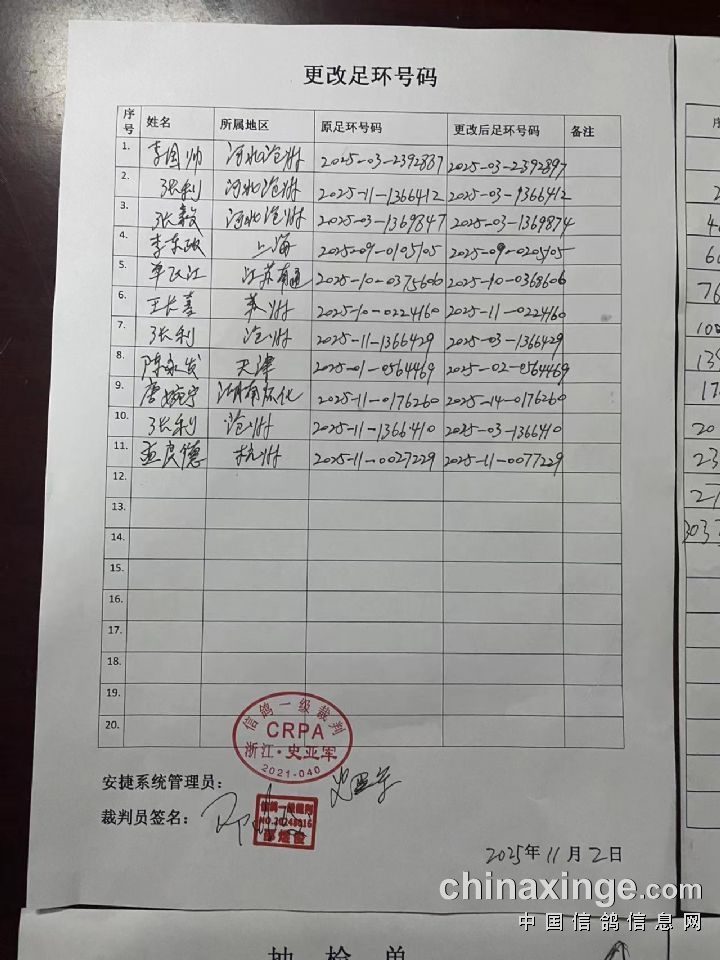 更改足环号码
序号 姓名 所属地区 原足环号码 更改后足环号码 备注
1. 李国帅 河北沧州 2025-03-2392887 2025-03-2392897
2. 张利 河北沧州 2025-11-1366412 2025-03-1366412
3. 张毅 河北沧州 2025-03-1369847 2025-03-1369874
4. 李东 上海 2025-09-0105105 2025-09-0205105
5. 江 江苏南通 2025-10-0375606 2025-10-0368606
6. 王长喜 苏州 2025-10-0224160 2025-11-0224460
7. 张利 沧州 2025-11-1366429 2025-03-1366429
8. 陈永发 天津 2025-01-0564469 2025-02-0564469
9. 唐婉宁 湖南怀化 2025-11-0176260 2025-14-0176260
10. 张利 沧州 2025-11-1366410 2025-03-1366410
11. 孟良德 杭州 2025-11-0027229 2025-11-0077229
12.
13.
14.
15.
16.
17.
18.
19.
20.
信鸽一级裁判
CRPA
浙江·史亚军
2021-040
安捷系统管理员：
裁判员签名：
信鸽一级裁判
2025年11月2日
chinaxinge.com
中国信鸽信息网
抽检单